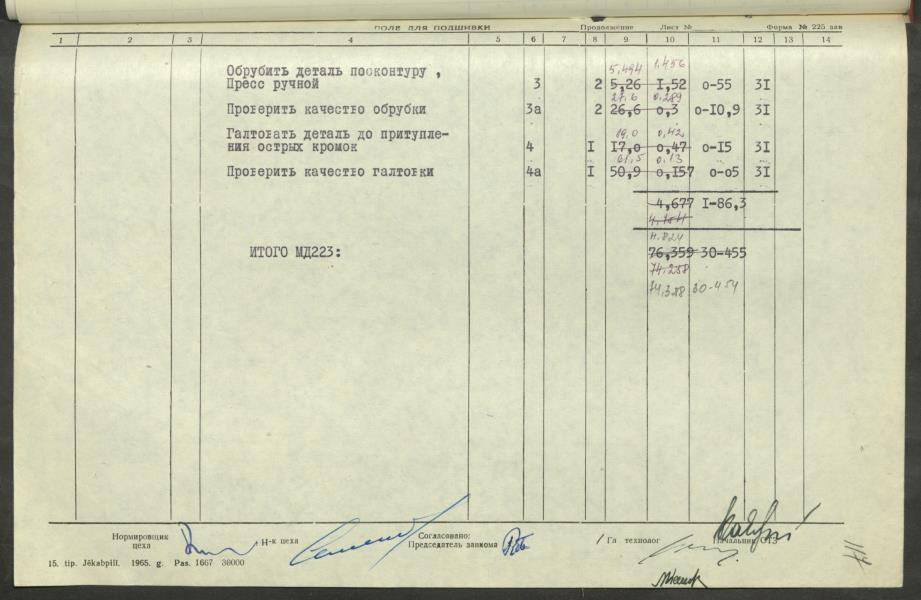 ПОЛЕ ДЛЯ ПОДШИВКИ Продолжение Лист № Форма № 225 зав
1 2 3 4 5 6 7 8 9 10 11 12 13 14
5,494 1,456
Обрубить деталь посконтуру ,
Пресс ручной 3 2 5,26 I,52 о-55 3I
27,6 0,289
Проверить качество обрубки 3а 2 26,6 о,3 о-I0,9 3I
19,0 0,42
Галтовать деталь до притупле-
ния острых кромок 4 I I7,о о,47 о-I5 3I
61,5 0,13
Проверить качество галтовки 4а I 50,9 о,I57 о-о5 3I
4,677 I-86,3
4.824
ИТОГО МД223: 76,359 30-455
74,258
74,328 30-454
Нормировщик
цеха
Н-к цеха
Согласовано:
Председатель завкома
Гл технолог
Начальник ОТЗ
15. tip. Jēkabpilī. 1965. g. Pas. 1667 30000